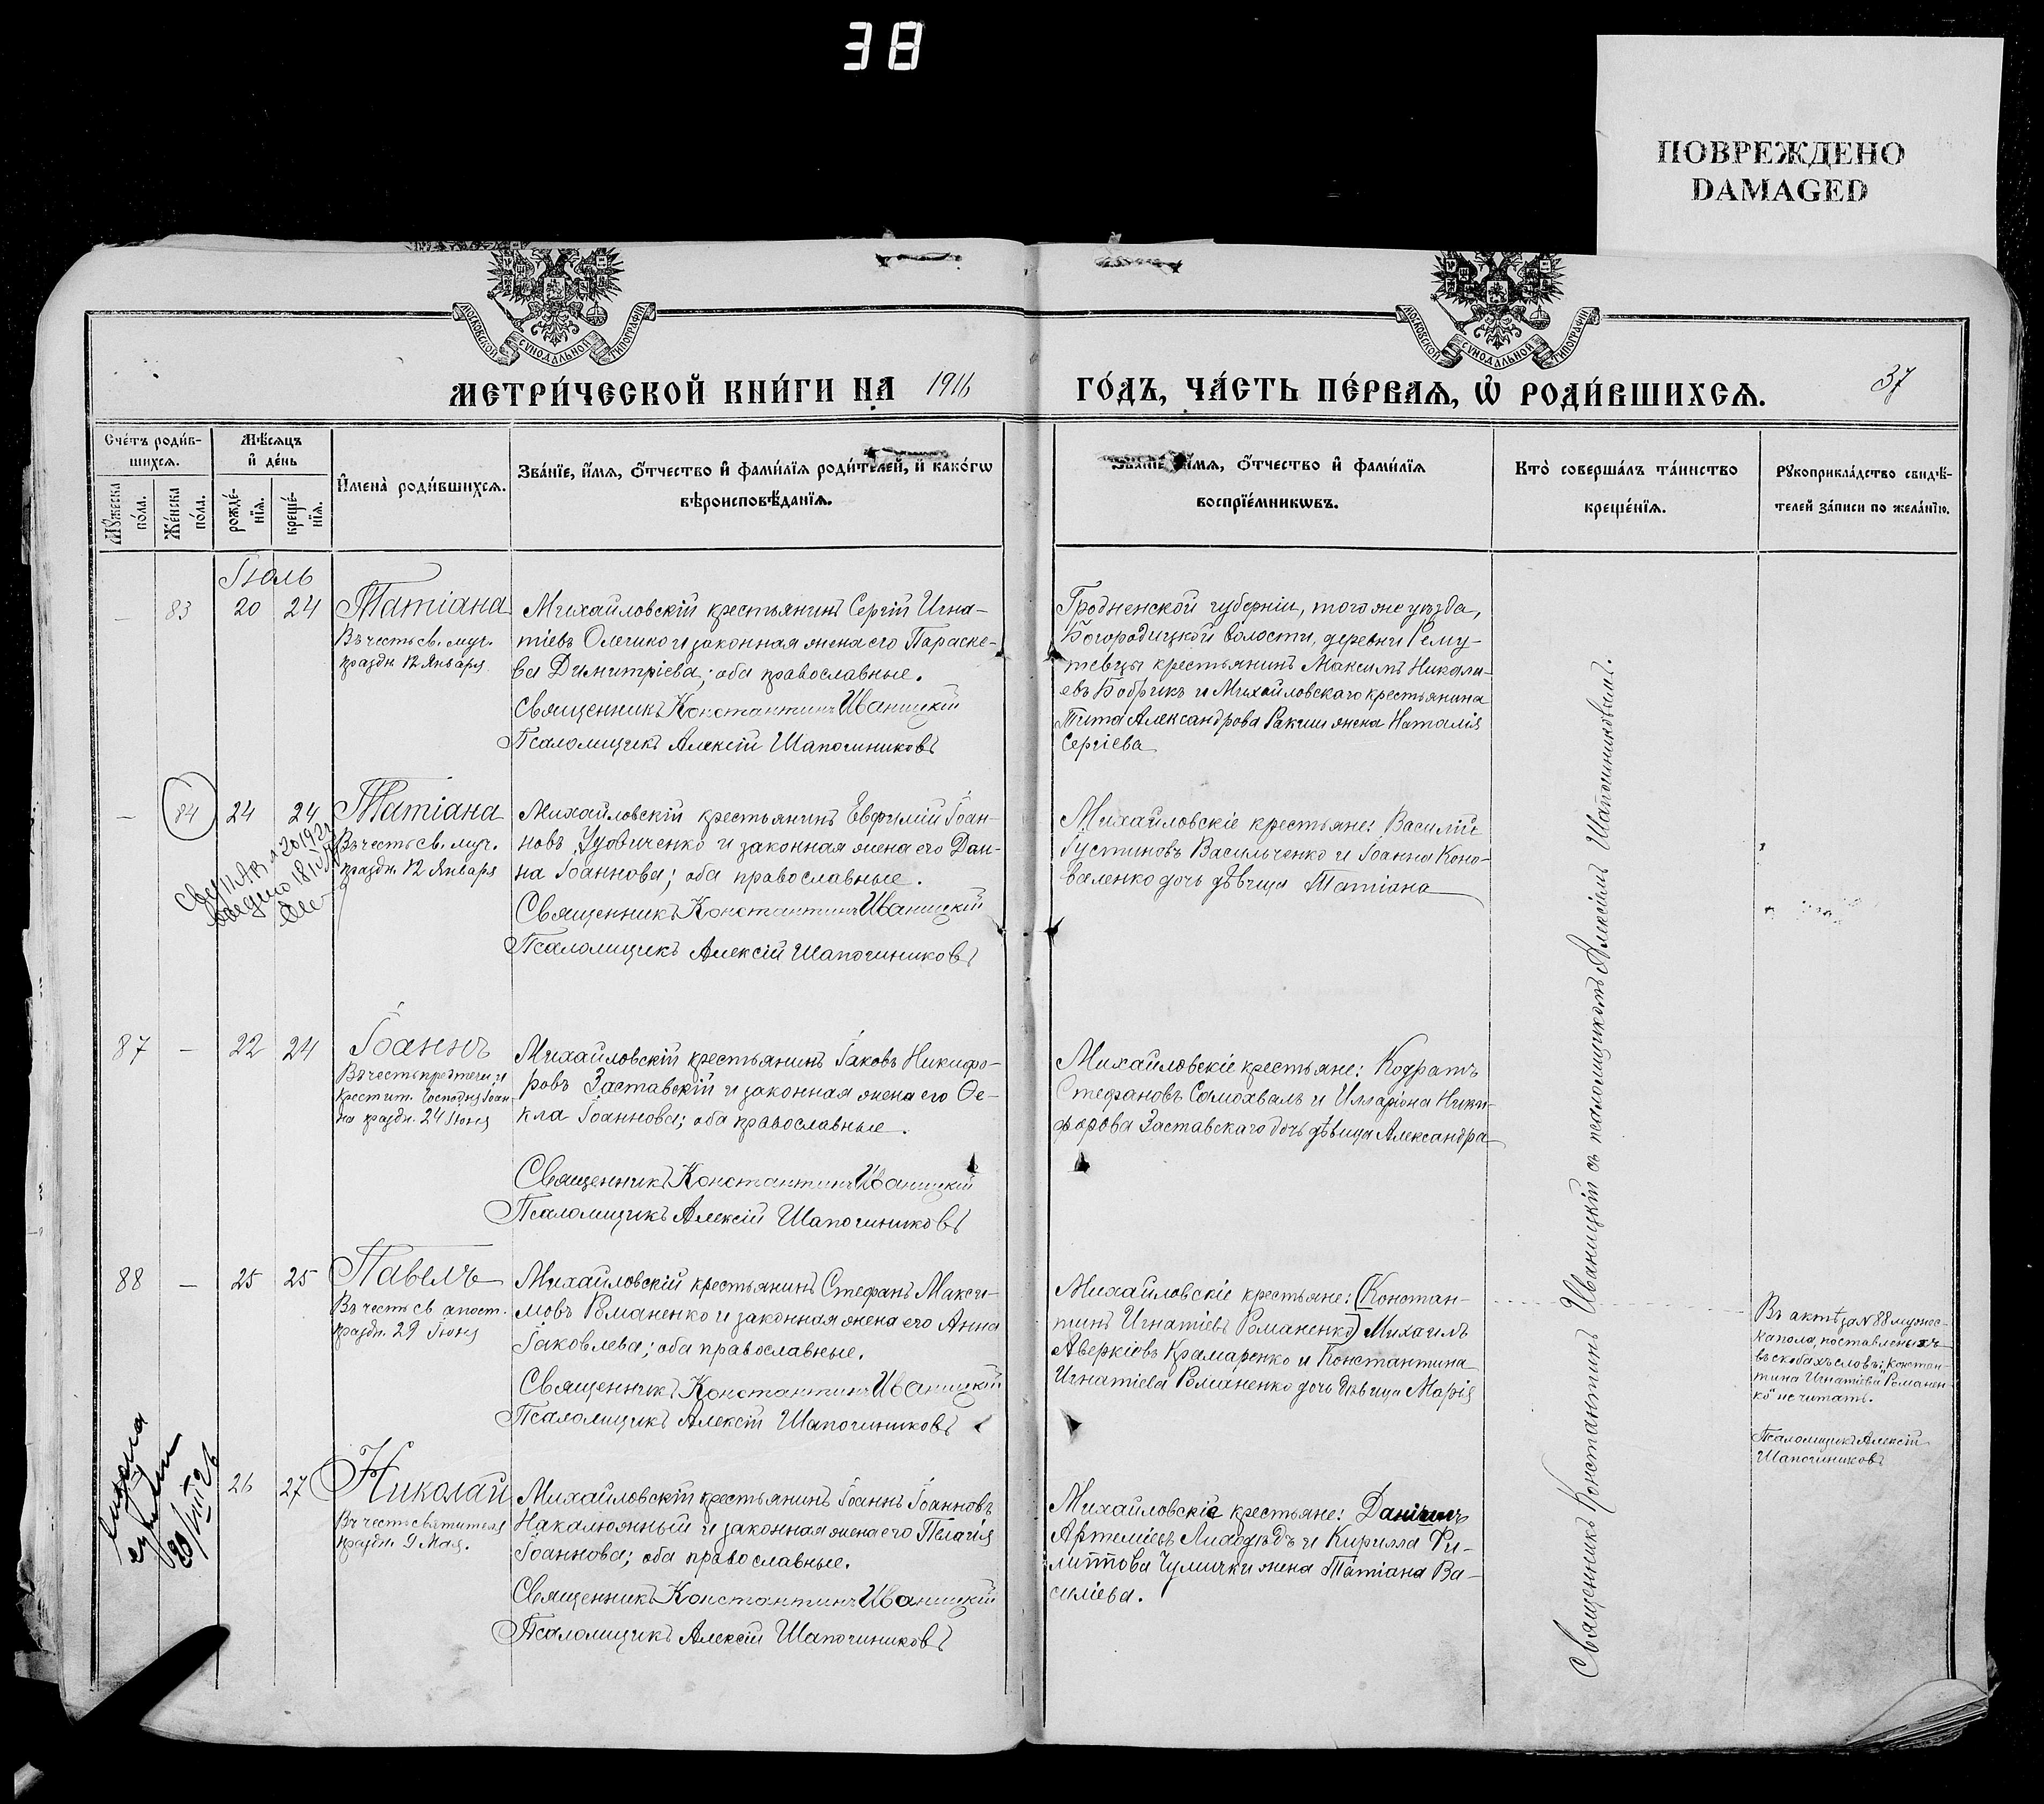 38
ПОВРЕЖДЕНО
DAMAGED
МОСКОВСКОЙ СѴНОДАЛЬНОЙ ТИПОГРАФІИ
МОСКОВСКОЙ СѴНОДАЛЬНОЙ ТИПОГРАФІИ
МЕТРИ́ЧЕСКОЙ КНИ́ГИ НА 1916
ГО́ДЪ, ЧА́СТЬ ПЕ́РВАѦ, Ѡ҆ РОДИ́ВШИХСѦ.
37
Сче́тъ роди́в-
шихсѧ.
Мѣ́сѧцъ
и҆ де́нь
Мꙋ́жеска
по́ла.
Же́нска
по́ла.
рожде́-
нїѧ.
креще́-
нїѧ.
И҆мена̀ роди́вшихсѧ.
Зва́нїе, и҆́мѧ, ѻ҆́тчество и҆ фами́лїѧ роди́телей, и҆ како́гѡ
вѣроисповѣ́данїѧ.
Зва́нїе, и҆́мѧ, ѻ҆́тчество и҆ фами́лїѧ
воспрїе́мникѡвъ.
Кто̀ соверша́лъ та́инство
креще́нїѧ.
Рꙋкоприкла́дство свидѣ́-
телей за́писи по жела́нїю.
Іюль
— 83 20 24 Татіана
Въ честь св. муч.
праздн 12 Января
Михайловскій крестьянинъ Сергій Игна-
тіевъ Олешко и законная жена его Параске-
ва Димитріева; оба православные.
Священникъ Константинъ Иваницкій
Псаломщикъ Алексій Шапочниковъ
Гродненской губерніи, того же уѣзда,
Богородицкой волости, деревни Рему-
тевцы крестьянинъ Максимъ Никола-
евъ Бобрикъ и Михайловскаго крестьянина
Тита Александрова Ракши жена Наталія
Сергіева
— 84 24 24 Татіана
Въ честь св. муч.
праздн. 12 Января
Михайловскій крестьянинъ Евфимій Іоан-
новъ Удовиченко и законная жена его Дан-
на Іоаннова; оба православные.
Священникъ Константинъ Иваницкій
Псаломщикъ Алексій Шапочниковъ
Михайловскіе крестьяне: Василій
Густиновъ Васильченко и Іоанна Коно-
валенко дочь дѣвица Татіана
87 — 22 24 Іоаннъ
Въ честь предтечи и
крестит. Господня Іоан-
на праздн. 24 Іюня
Михайловскій крестьянинъ Іаковъ Никифо-
ровъ Заставскій и законная жена его Ѳе-
кла Іоаннова; оба православные.
Священникъ Константинъ Иваницкій
Псаломщикъ Алексій Шапочниковъ
Михайловскіе крестьяне: Кодратъ
Стефановъ Самохвалъ и Илларіона Ники-
форова Заставскаго дочь дѣвица Александра
88 — 25 25 Павелъ
Въ честь св апост.
праздн. 29 Іюня
Михайловскій крестьянинъ Стефанъ Макси-
мовъ Романенко и законная жена его Анна
Іаковлева; оба православные.
Священникъ Константинъ Иваницкій
Псаломщикъ Алексій Шапочниковъ
Михайловскіе крестьяне: (Констан-
тинъ Игнатіевъ Романенко) Михаилъ
Аверкіевъ Крамаренко и Константина
Игнатіева Романенко дочь дѣвица Марія
Въ актѣ за № 88 мужес-
ка пола, поставленныхъ
въ скобахъ словъ: „Констан-
тина Игнатіева Романен-
ко" не читать.
Псаломщикъ Алексій
Шапочниковъ
26 27 Николай
Въ честь святителя
праздн. 9 Мая.
Михайловскій крестьянинъ Іоаннъ Іоанновъ
Накалюжный и законная жена его Пелагія
Іоаннова; оба православные.
Священникъ Константинъ Иваницкій
Псаломщикъ Алексій Шапочниковъ
Михайловскіе крестьяне: Даніилъ
Артеміевъ Лиходѣдъ и Кирилла Фи-
липпова Чумички жена Татіана Ва-
силіева.
Священникъ Константинъ Иваницкій съ псаломщикомъ Алексіемъ Шапочниковымъ.